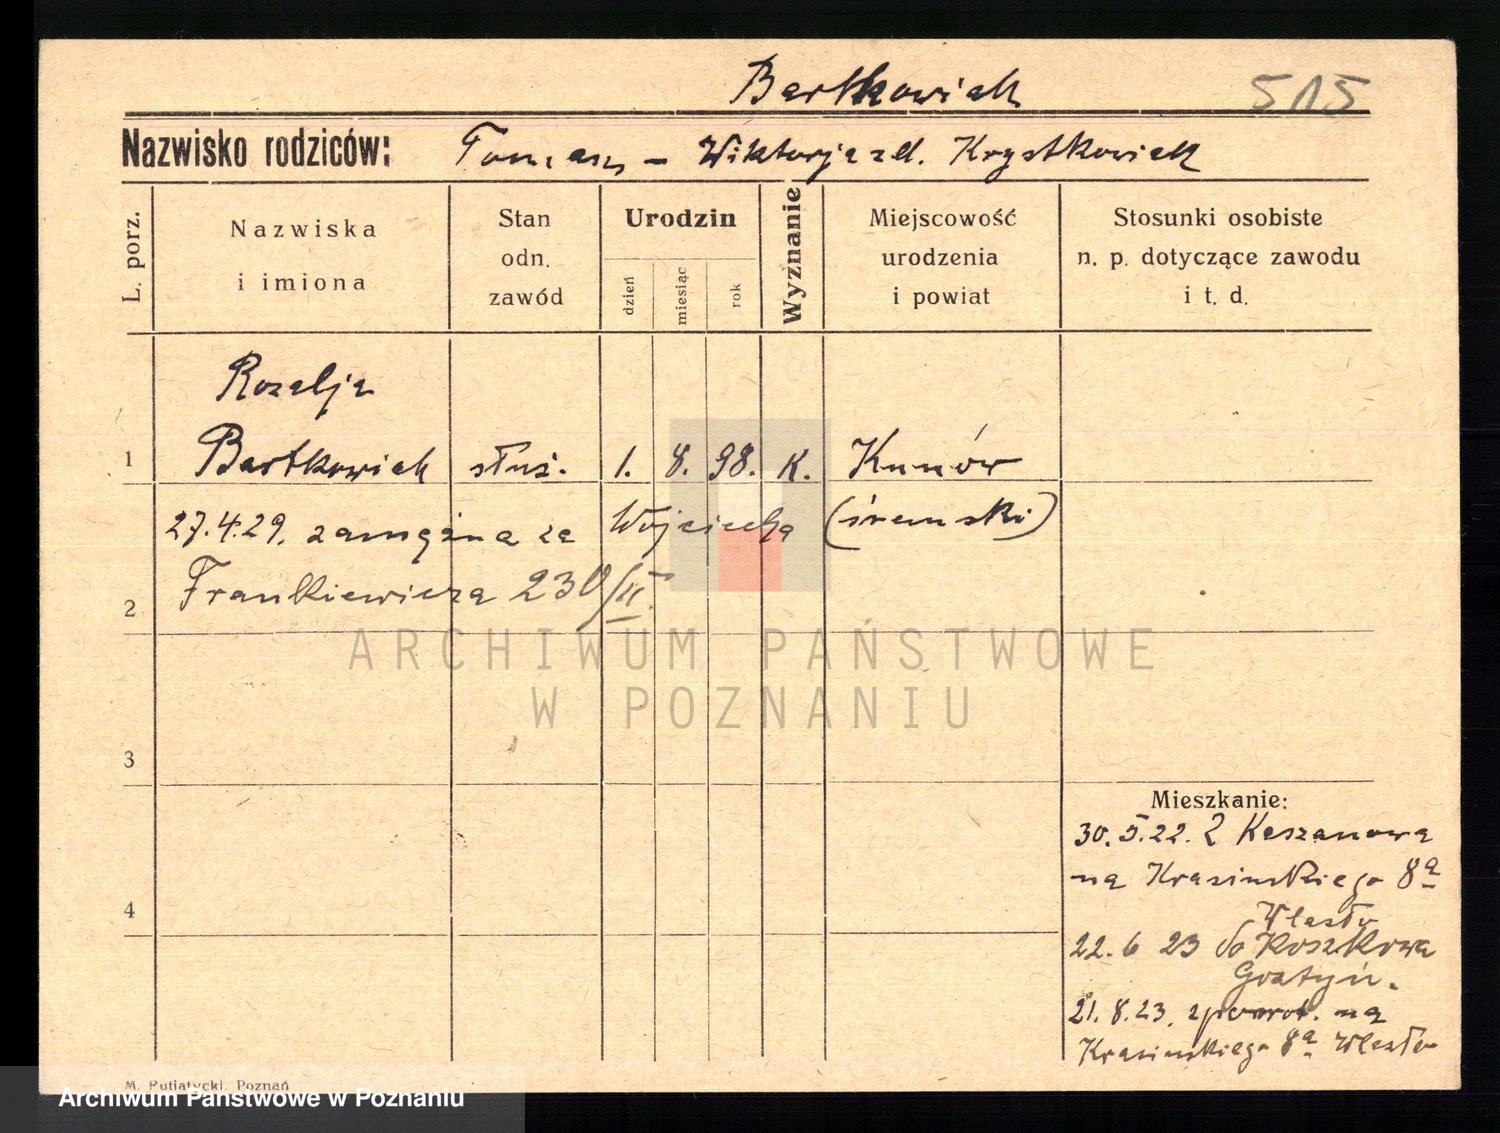 Bartkowiak 515
Nazwisko rodziców: Tomasz – Wiktorja zd. Krystkowiak
L. porz.
Nazwiska
i imiona
Stan
odn.
zawód
Urodzin
dzień
miesiąc
rok
Wyznanie
Miejscowość
urodzenia
i powiat
Stosunki osobiste
n. p. dotyczące zawodu
i t. d.
Rozalja
1 Bartkowiak służ. 1. 8. 98. K. Kunów
27.4.29. zamężna za Wojciecha (śremski)
2 Frankiewicza 230/II.
ARCHIWUM PAŃSTWOWE
W POZNANIU
3
Mieszkanie:
30.5.22. z Kaszanowa
na Krasińskiego 8a
4
22.6 23 do Koszkowa
Gostyń.
21.8.23. zpowrot. na
Krasińskiego 8a
M. Putiatycki, Poznań
Archiwum Państwowe w Poznaniu